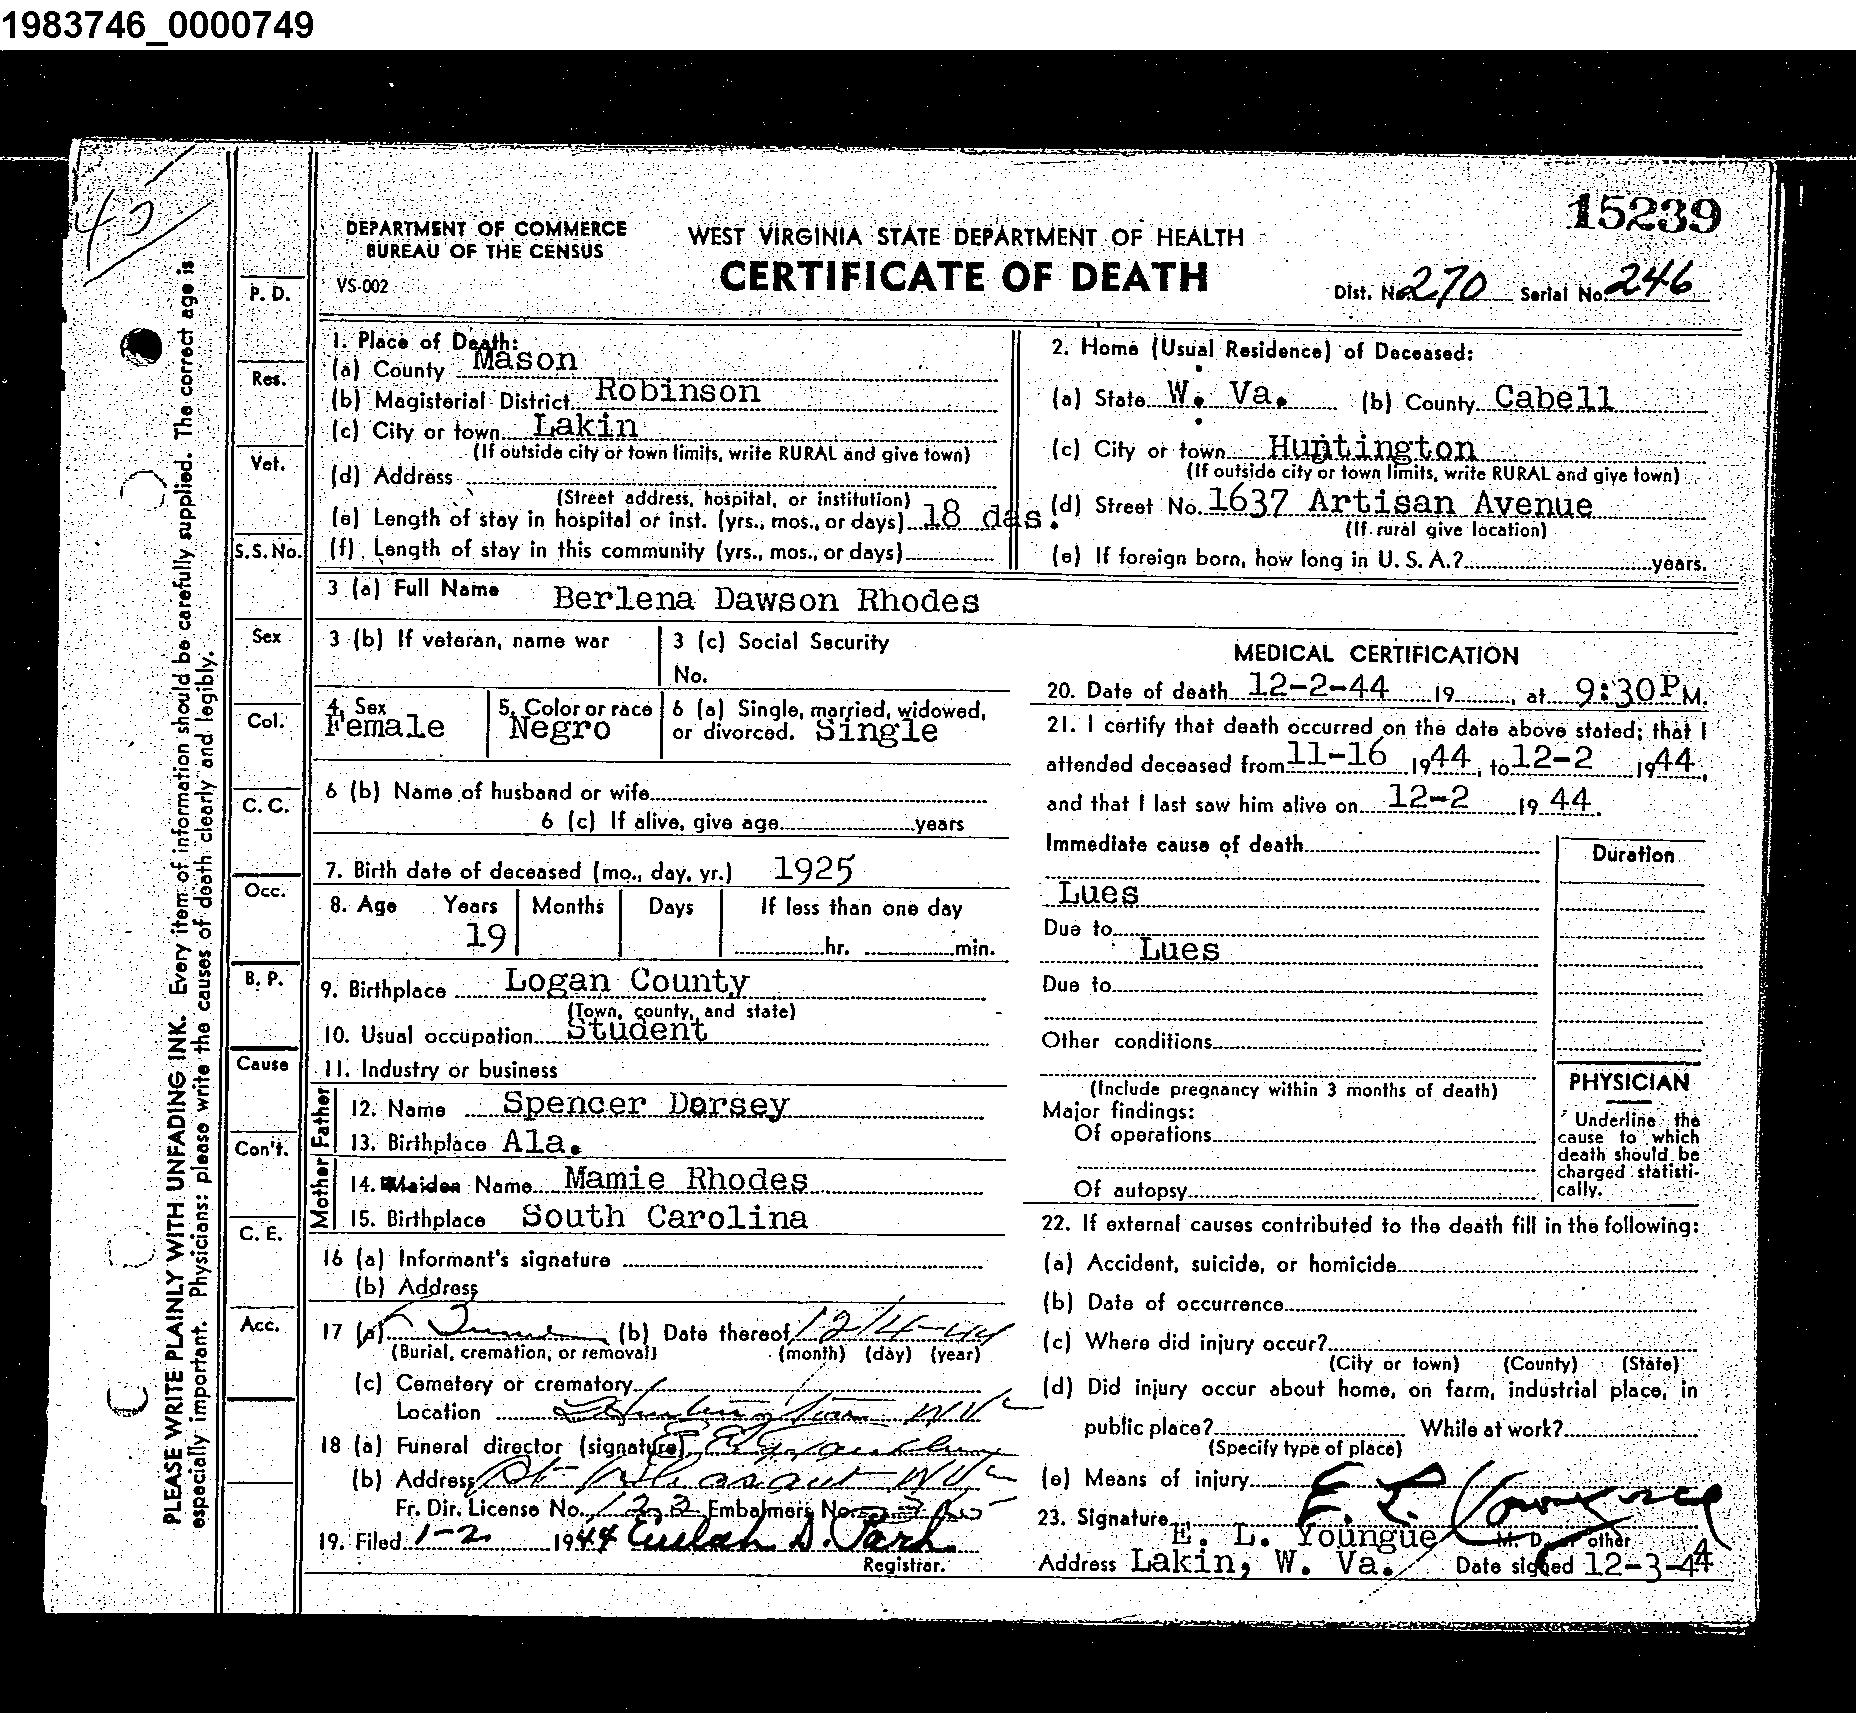 1983746_0000749
45
15239
DEPARTMENT OF COMMERCE
BUREAU OF THE CENSUS
VS-002
WEST VIRGINIA STATE DEPARTMENT OF HEALTH
CERTIFICATE OF DEATH
Dist. No. 270 Serial No. 246
PLEASE WRITE PLAINLY WITH UNFADING INK. Every item of information should be carefully supplied. The correct age is
especially important. Physicians: please write the causes of death clearly and legibly.
P. D.
Res.
Vet.
S.S. No.
Sex
Col.
C. C.
Occ.
B. P.
Cause
Con't.
C. E.
Acc.
1. Place of Death:
(a) County Mason
(b) Magisterial District Robinson
(c) City or town Lakin
(If outside city or town limits, write RURAL and give town)
(d) Address
(Street address, hospital, or institution)
(e) Length of stay in hospital or inst. (yrs., mos., or days) 18 das.
(f) Length of stay in this community (yrs., mos., or days)
2. Home (Usual Residence) of Deceased:
(a) State W. Va. (b) County Cabell
(c) City or town Huntington
(If outside city or town limits, write RURAL and give town)
(d) Street No. 1637 Artisan Avenue
(If rural give location)
(e) If foreign born, how long in U. S. A.? years.
3 (a) Full Name Berlena Dawson Rhodes
3 (b) If veteran, name war
3 (c) Social Security
No.
4. Sex Female
5. Color or race Negro
6 (a) Single, married, widowed,
or divorced. Single
6 (b) Name of husband or wife
6 (c) If alive, give age years
7. Birth date of deceased (mo., day, yr.) 1925
8. Age Years Months Days If less than one day
19 hr. min.
9. Birthplace Logan County
(Town, county, and state)
10. Usual occupation Student
11. Industry or business
Father
12. Name Spencer Dorsey
13. Birthplace Ala.
Mother
14. Maiden Name Mamie Rhodes
15. Birthplace South Carolina
16 (a) Informant's signature
(b) Address
17 (a) (b) Date thereof 12/4-44
(Burial, cremation, or removal) (month) (day) (year)
(c) Cemetery or crematory
Location Huntington W Va
18 (a) Funeral director (signature)
(b) Address Pt Pleasant W Va
Fr. Dir. License No. 123 Embalmers No.
19. Filed 1-2 1944 Eulah D. Park
Registrar.
MEDICAL CERTIFICATION
20. Date of death 12-2-44 19 , at 9:30P M.
21. I certify that death occurred on the date above stated; that I
attended deceased from 11-16 1944, to 12-2 1944,
and that I last saw him alive on 12-2 19 44.
Immediate cause of death
Duration
Lues
Due to
Lues
Due to
Other conditions
(Include pregnancy within 3 months of death)
Major findings:
Of operations
Of autopsy
PHYSICIAN
Underline the
cause to which
death should be
charged statisti-
cally.
22. If external causes contributed to the death fill in the following:
(a) Accident, suicide, or homicide
(b) Date of occurrence
(c) Where did injury occur?
(City or town) (County) (State)
(d) Did injury occur about home, on farm, industrial place, in
public place? While at work?
(Specify type of place)
(e) Means of injury
23. Signature E. L. Youngue
E. L. Youngue M. D. or other
Address Lakin, W. Va. Date signed 12-3-44